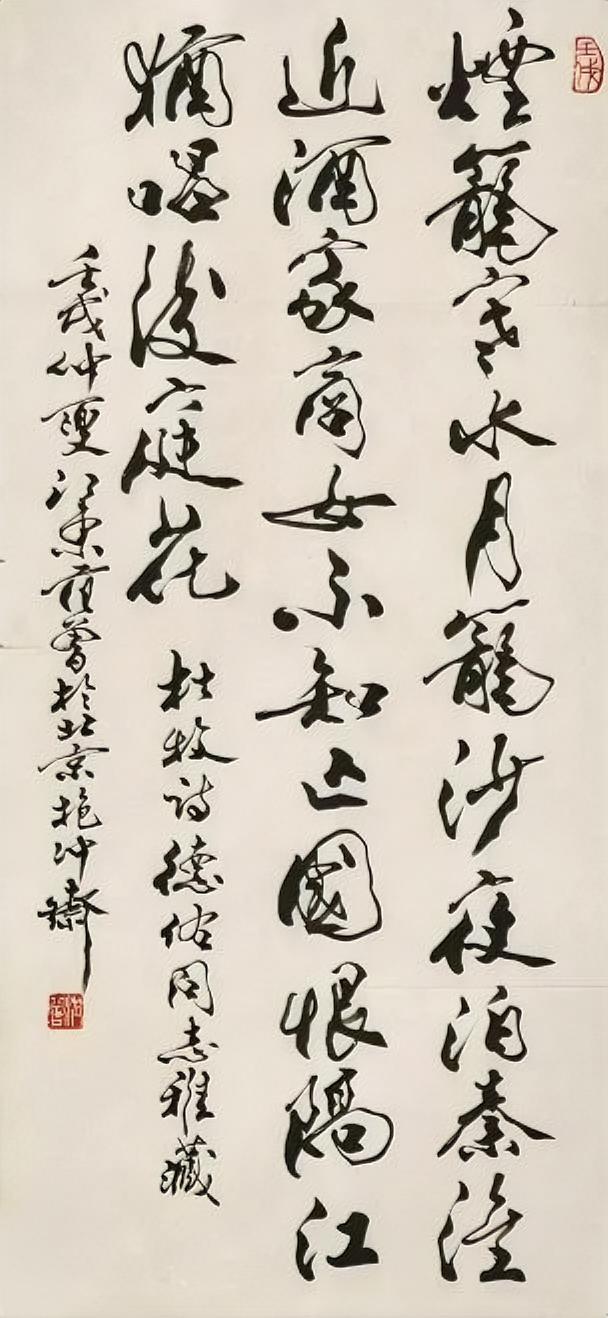 壬戌
煙籠寒水月籠沙夜泊秦淮
近酒家商女不知亡國恨隔江
猶唱後庭花 杜牧詩德佑同志雅藏
壬戌仲夏江東范曾於北京抱沖齋
范曾